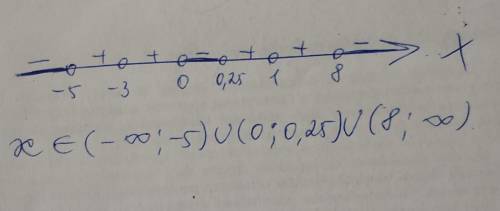 − + + − + + − X
−5 −3 0 0,25 1 8
x ∈ (−∞; −5) ∪ (0; 0,25) ∪ (8; ∞)